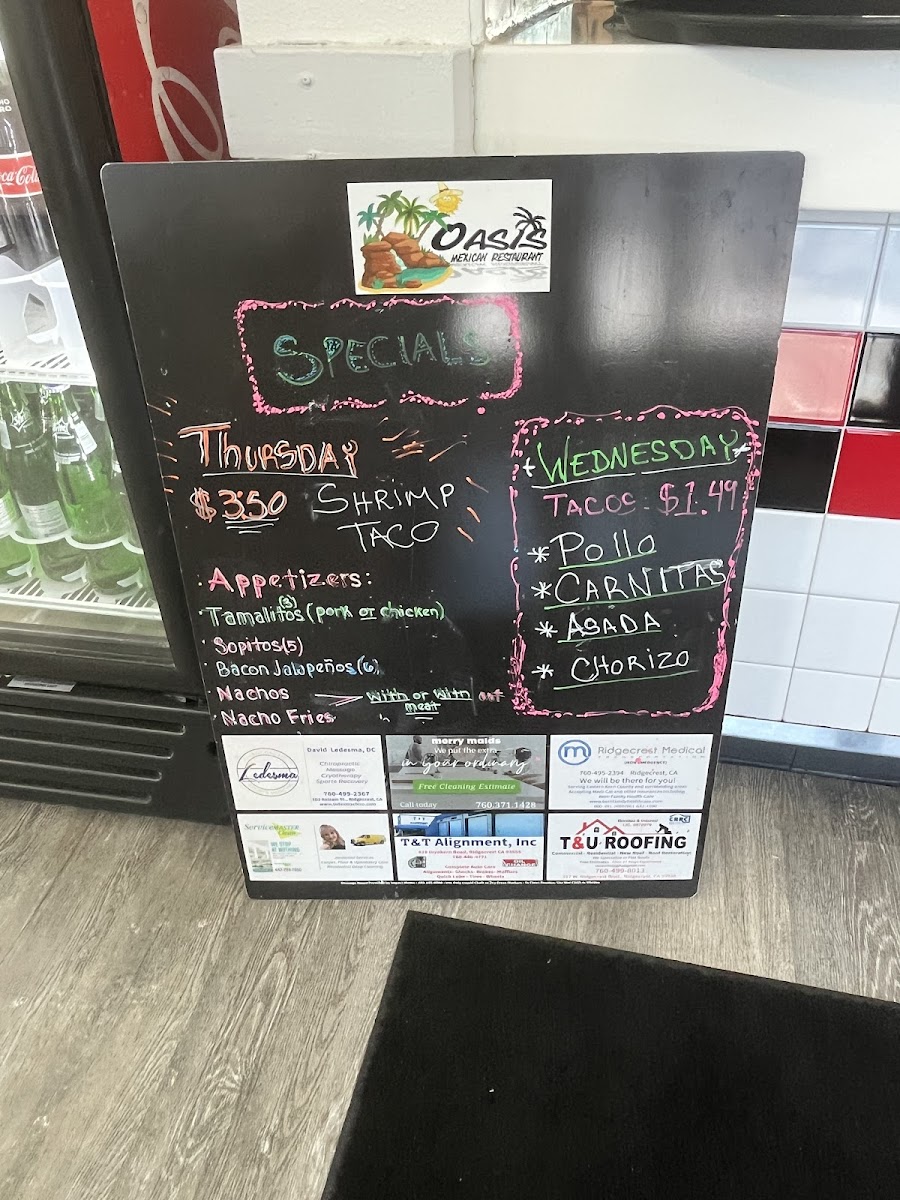 Coca-Cola
OASIS
MEXICAN RESTAURANT
SPECIALS
THURSDAY
$3.50 SHRIMP
TACO
Appetizers:
Tamalitos (3) (pork or chicken)
Sopitos (5)
Bacon Jalapeños (6)
Nachos
With or With out
meat
Nacho Fries
WEDNESDAY
TACOS $1.49
* Pollo
* CARNITAS
* ASADA
* CHORIZO
Ledesma
David Ledesma, DC
Chiropractic
Massage
Cryotherapy
Sports Recovery
760-499-2367
merry maids
We put the extra
in your ordinary
Free Cleaning Estimate
Call today 760.371.1428
m Ridgecrest Medical
TRANSPORTATION
760-495-2394 Ridgecrest, CA
We will be there for you!
ServiceMASTER
Clean
T&T Alignment, Inc
Complete Auto Care
Alignments - Shocks - Brakes - Mufflers
Quick Lube - Tires - Wheels
T&U ROOFING
760-499-8013